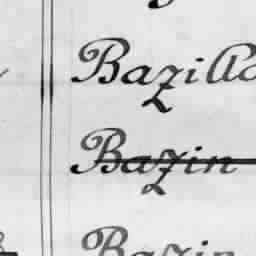 Bazilla
Bazin
Bazin